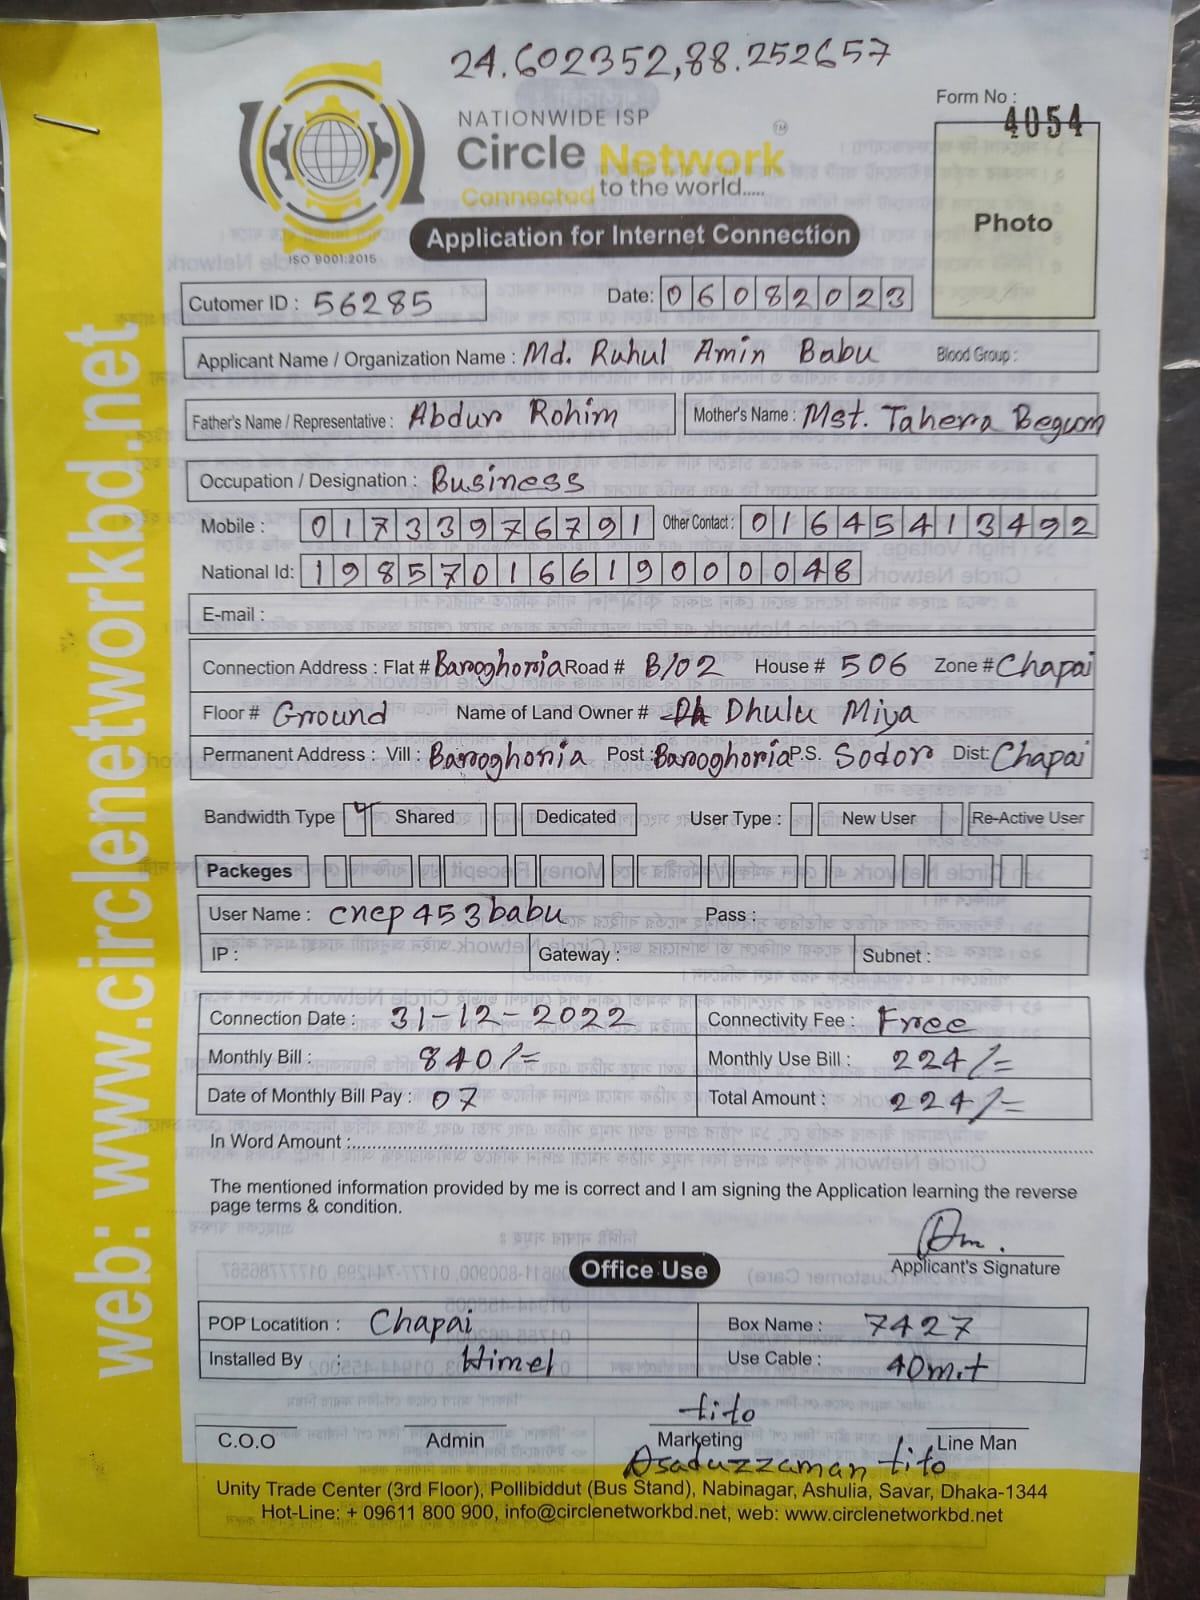 24.602352,88.252657
Form No : 4054
NATIONWIDE ISP
Circle Network TM
Connected to the world.....
Photo
Application for Internet Connection
ISO 9001:2015
Cutomer ID : 56285 Date: 06082023
Applicant Name / Organization Name : Md. Ruhul Amin Babu Blood Group :
Father's Name / Representative : Abdur Rohim Mother's Name : Mst. Tahera Begum
Occupation / Designation : Business
Mobile : 01733976791 Other Contact : 01645413492
National Id: 19857016619000048
E-mail :
Connection Address : Flat # Baroghoria Road # B/02 House # 506 Zone # Chapai
Floor # Ground Name of Land Owner # Dhulu Miya
Permanent Address : Vill : Baroghoria Post : Baroghoria P.S. Sodor Dist: Chapai
Bandwidth Type Shared Dedicated User Type : New User Re-Active User
Packeges
User Name : cncp453babu Pass :
IP : Gateway : Subnet :
Connection Date : 31-12-2022 Connectivity Fee : Free
Monthly Bill : 840/= Monthly Use Bill : 224/=
Date of Monthly Bill Pay : 07 Total Amount : 224/=
In Word Amount :
The mentioned information provided by me is correct and I am signing the Application learning the reverse
page terms & condition.
Applicant's Signature
Office Use
POP Locatition : Chapai Box Name : 7427
Installed By : Himel Use Cable : 40m.t
tito
C.O.O Admin Marketing Line Man
Asaduzzaman tito
Unity Trade Center (3rd Floor), Pollibiddut (Bus Stand), Nabinagar, Ashulia, Savar, Dhaka-1344
Hot-Line: + 09611 800 900, info@circlenetworkbd.net, web: www.circlenetworkbd.net
web: www.circlenetworkbd.net